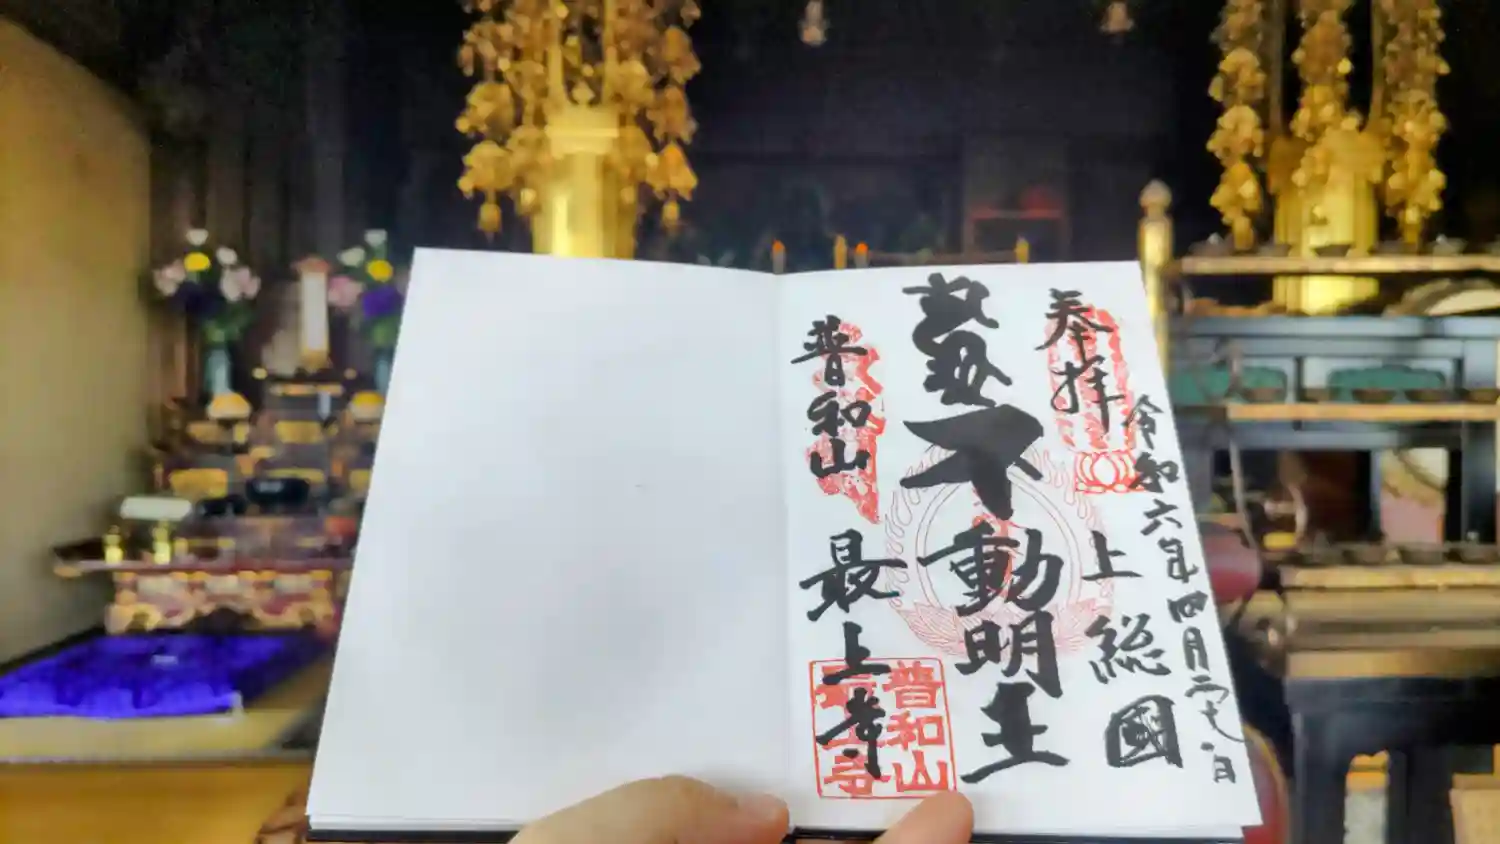 奉拝
令和六年四月二七日
上総國
不動明王
普和山
最上寺
普和山
最上寺